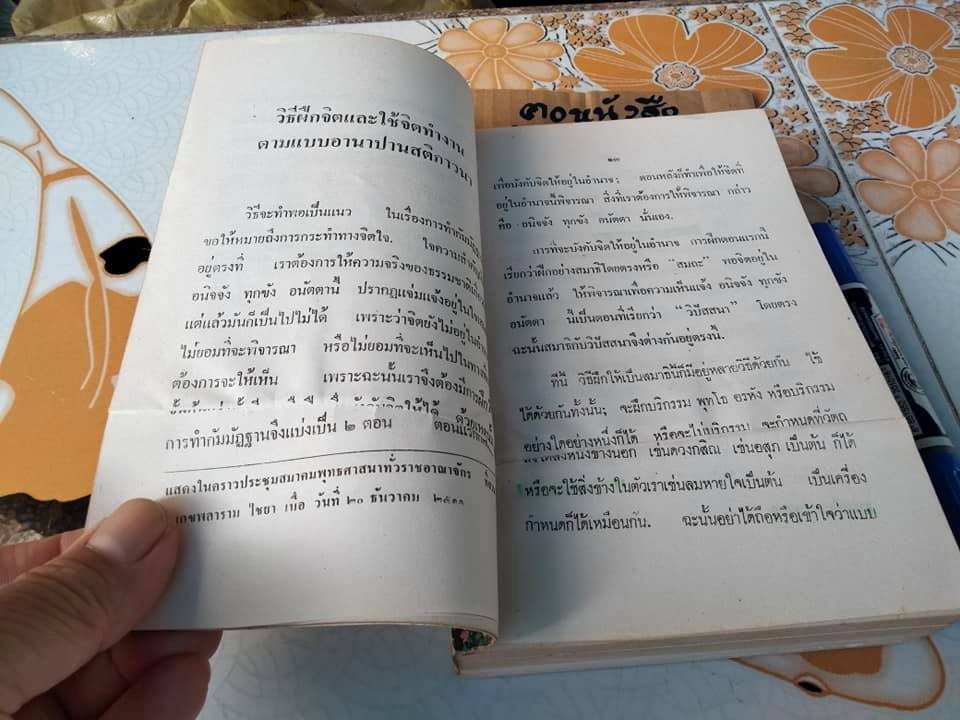 วิธีฝึกจิตและใช้จิตทำงาน
ตามแบบอานาปานสติภาวนา
วิธีจะทำพอเป็นแนว ในเรื่องการทำกัมมัฏฐาน
ขอให้หมายถึงการกระทำทางจิตใจ. ใจความสำคัญ
อยู่ตรงที่ เราต้องการให้ความจริงของธรรมชาติเรื่อง
อนิจจัง ทุกขัง อนัตตานี้ ปรากฏแจ่มแจ้งอยู่ในใจ
แต่แล้วมันก็เป็นไปไม่ได้ เพราะว่าจิตยังไม่อยู่ใน
ไม่ยอมที่จะพิจารณา หรือไม่ยอมที่จะเห็นไปในทาง
ต้องการจะให้เห็น เพราะฉะนั้นเราจึงต้องมีการฝึก
การทำกัมมัฏฐานจึงแบ่งเป็น ๒ ตอน ตอนแรก
แสดงในคราวประชุมสมาคมพุทธศาสนาทั่วราชอาณาจักร
ไชยา เมื่อ วันที่ ๒๐ ธันวาคม ๒๕๑๑
๓๐หนังสือ
๒๓
เพื่อบังคับจิตให้อยู่ในอำนาจ; ตอนหลังก็ทำเพื่อให้จิตที่
อยู่ในอำนาจนี้พิจารณา สิ่งที่เราต้องการให้พิจารณา กล่าว
คือ อนิจจัง ทุกขัง อนัตตา นั่นเอง.
การที่จะบังคับจิตให้อยู่ในอำนาจ การฝึกตอนแรกนี้
เรียกว่าฝึกอย่างสมาธิโดยตรงหรือ "สมถะ" พอจิตอยู่ใน
อำนาจแล้ว ให้พิจารณาเพื่อความเห็นแจ้ง อนิจจัง ทุกขัง
อนัตตา นี้เป็นตอนที่เรียกว่า "วิปัสสนา" โดยตรง
ฉะนั้นสมาธิกับวิปัสสนาจึงต่างกันอยู่ตรงนี้.
ทีนี้ วิธีฝึกให้เป็นสมาธินี้ก็มีอยู่หลายวิธีด้วยกัน ใช้
ได้ด้วยกันทั้งนั้น; จะฝึกบริกรรม พุทโธ อรหัง หรือบริกรรม
อย่างใดอย่างหนึ่งก็ได้ หรือจะไม่บริกรรม จะกำหนดที่วัตถุ
ข้างนอก เช่นดวงกสิณ เช่นอสุภ เป็นต้น ก็ได้
หรือจะใช้สิ่งข้างในตัวเราเช่นลมหายใจเป็นต้น เป็นเครื่อง
กำหนดก็ได้เหมือนกัน. ฉะนั้นอย่าได้ถือหรือเข้าใจว่าแบบ